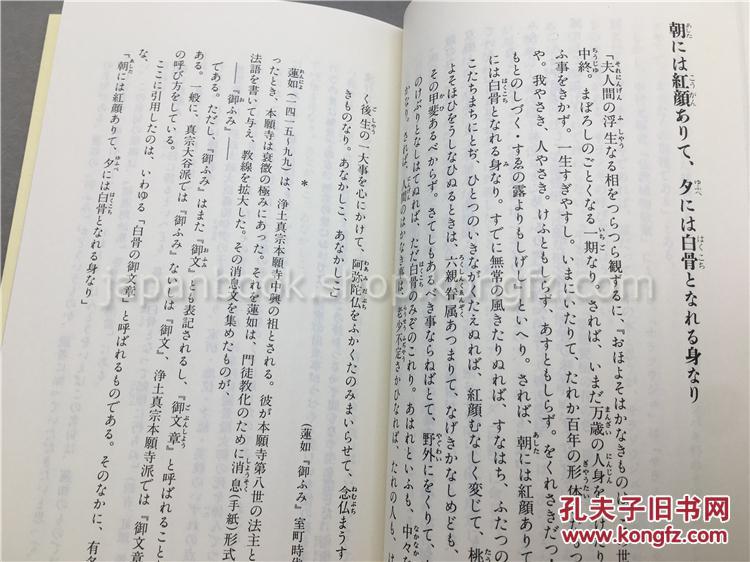 朝には紅顔ありて、夕には白骨となれる身なり
「夫人間の浮生なる相をつらつら観するに、『おほよそはかなきものは、の世
中終。まぼろしのごとくなる一期なり。されば、いまだ万歳の人身をうけたり
ふ事をきかず。一生すぎやすし。いまにいたりて、たれか百年の形体をたもつ
や。我やさき、人やさき。けふともしらず、あすともしらず。をくれさきだつ
もとのしづく・すゑの露よりもしげしといへり。されば、朝には紅顔ありて
は白骨となれる身なり。すでに無常の風きたりぬれば、すなはち、ふたつの
こたちまちにとぢ、ひとつのいきながくたえぬれば、紅顔むなしく変じて、桃
よそほひをうしなひぬるときは、六親眷属あつまりて、なげきかなしめども、
その甲斐あるべからず。さてしもあるべき事ならねばとて、野外にをくりて、
のけぶりとなしはてぬれば、ただ白骨のみぞのこれり。あはれといふも、中々
かなり。されば、人間のはかなき事は、老少不定のさかひなれば、たれの人も、
く後生の一大事を心にかけて、阿弥陀仏をふかくたのみまいらせて、念仏まうす
きものなり。あなかしこ、あなかしこ
（蓮如『御ふみ』室町時代
*
蓮如（一四一五～九九）は、浄土真宗本願寺中興の祖とされる。彼が本願寺第八世の法主と
ったとき、本願寺は衰微の極みにあった。それを蓮如は、門徒教化のために消息（手紙）形式
法語を書いて与え、教線を拡大した。その消息文を集めたものが、
――『御ふみ』――
である。ただし、『御ふみ』はまた『御文』とも表記されるし、『御文章』と呼ばれること
ある。一般に、真宗大谷派では『御ふみ』ないしは『御文』、浄土真宗本願寺派では『御文章
の呼び方をしている。
ここに引用したのは、いわゆる「白骨の御文章」と呼ばれるものである。そのなかに、有名
な、
「朝には紅顔ありて、夕には白骨となれる身なり」
japanbook.shop.kongfz.com
孔夫子旧书网